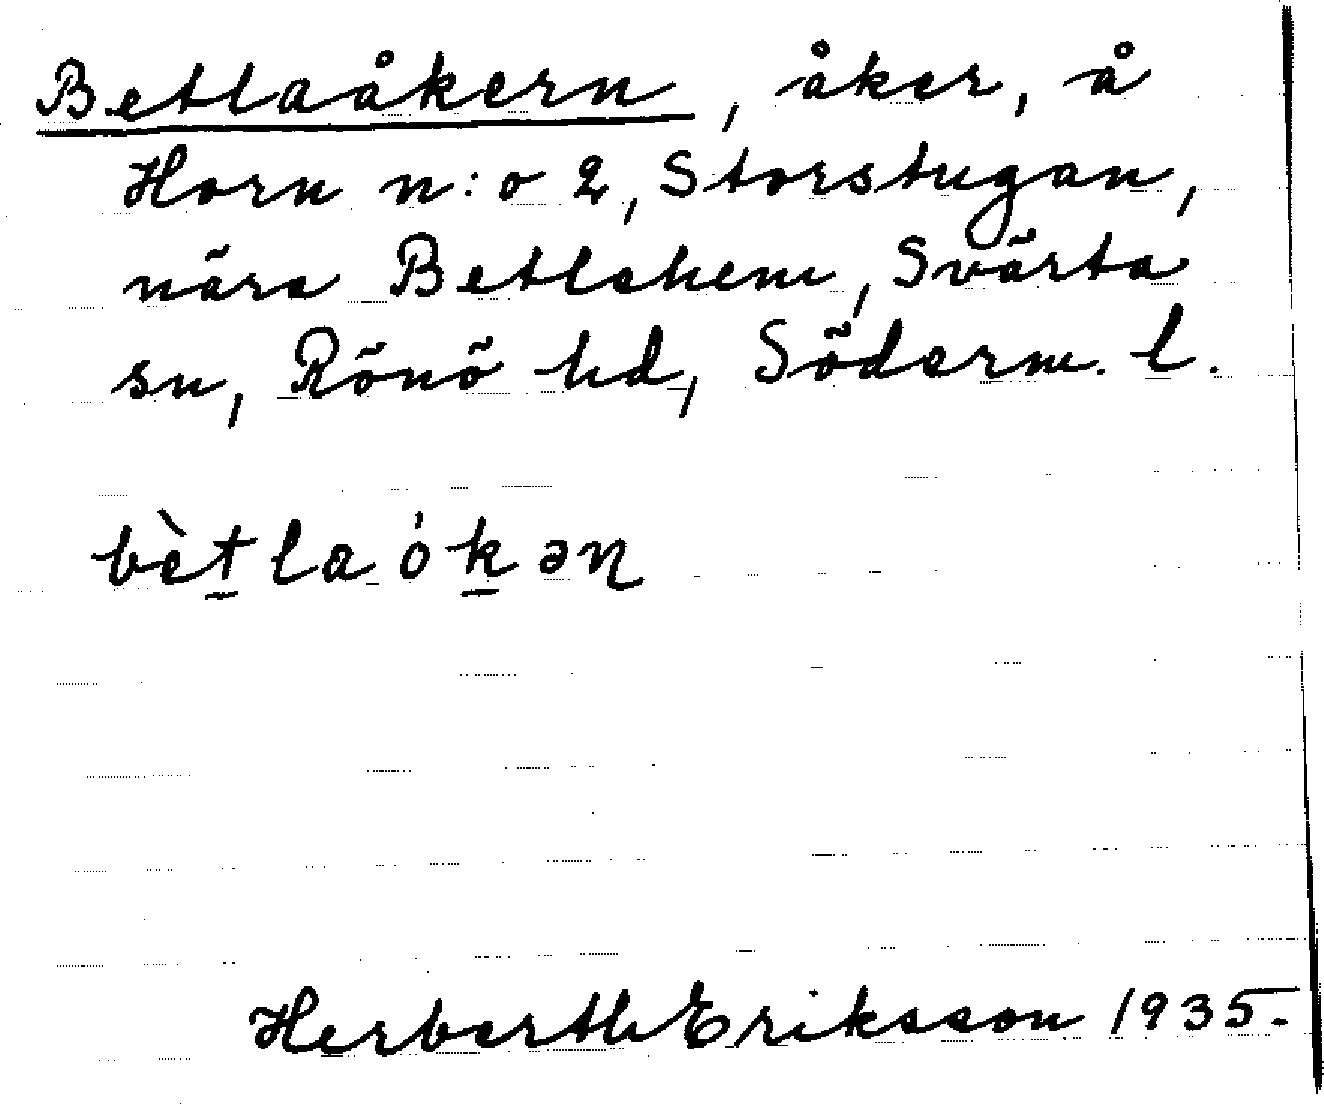 Betlaåkern, åker, å
Horn n:o 2, Storstugan,
nära Betlehem, Svärta
sn, Rönö hd, Söderm. l.
bètlaókəɳ
Herberth Eriksson 1935.